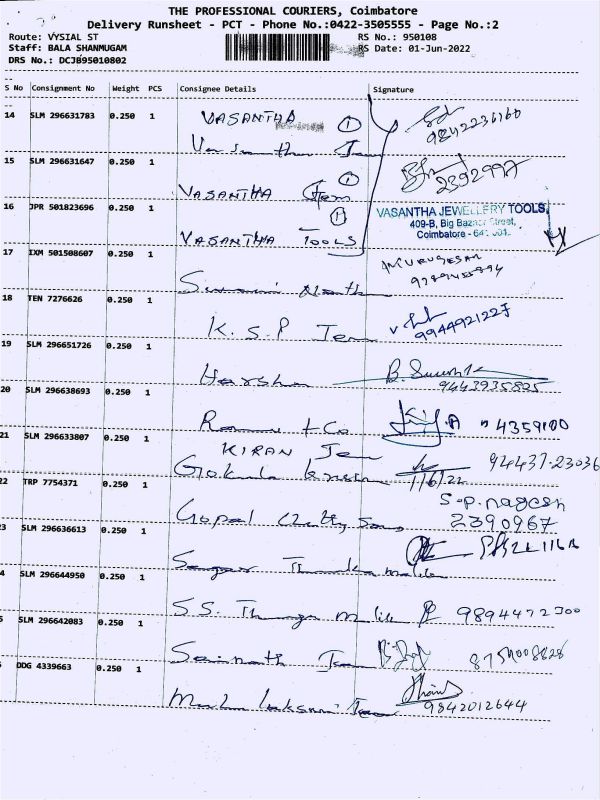 THE PROFESSIONAL COURIERS, Coimbatore
Delivery Runsheet - PCT - Phone No.:0422-3505555 - Page No.:2
Route: VYSIAL ST RS No.: 950108
Staff: BALA SHANMUGAM RS Date: 01-Jun-2022
DRS No.: DCJB95010802
S No Consignment No Weight PCS Consignee Details Signature
14 SLM 296631783 0.250 1 VASANTHA 1
9842236160
15 SLM 296631647 0.250 1
VASANTHA Gem 1 2392997
16 JPR 501823696 0.250 1 VASANTHA JEWELLERY TOOLS,
409-B, Big Bazaar Street,
VASANTHA TOOLS Coimbatore -
17 IXM 501508607 0.250 1 MURUGESAN
18 TEN 7276626 0.250 1
K.S.P Jem 9944921227
19 SLM 296651726 0.250 1
Harsha 9443935825
20 SLM 296638693 0.250 1
+ Co 4359100
21 SLM 296633807 0.250 1 KIRAN Jem 94437-23036
Gokula 1/6/22
22 TRP 7754371 0.250 1 S.P. nagesh
Gopal Chetty Sons 2390967
3 SLM 296636613 0.250 1
4 SLM 296644950 0.250 1
S.S. Thanga Malik 9894472300
5 SLM 296642083 0.250 1
Sainath Jem
DDG 4339663 0.250 1
Maha Laksmi Jem 9842012644